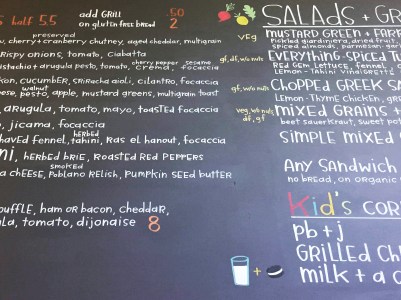 s half 5.5
add GRill .50
on gluten free bread 2
preserved
w, cherry + cranberry chutney, aged cheddar, multigrain
Rispy onions, tomato, ciabatta
cherry pepper sesame
istachio + arugula pesto, tomato, crema, focaccia
kon, cucumber, sriracha aioli, cilantro, focaccia
walnut
ese, pesto, apple, mustard greens, multigrain toast
, arugula, tomato, mayo, toasted focaccia
e, jicama, focaccia
herbed
haved fennel, tahini, ras el hanout, focaccia
mi, herbed brie, roasted red peppers
smoked
a cheese, poblano relish, pumpkin seed butter
ouffle, ham or bacon, cheddar,
ula, tomato, dijonaise 8
SALAdS + GR
veg
mustard green + farr
pickled giardiniera, dried fruit
spiced almonds, parmesan-garl
gf, df, w/o nuts
EVERYthing spiced tu
red gem lettuce, fennel, c
lemon-tahini vinaigrette
gf, w/o nuts
Chopped greek sa
lemon-thyme chicken, gr
veg, w/o nuts
df, gf
mixed grains +
beet sauerkraut, sweet pot
simple mixed
Any sandwich
no bread, on organic
Kid's cor
pb + j
GRilled ch
milk + a c
+